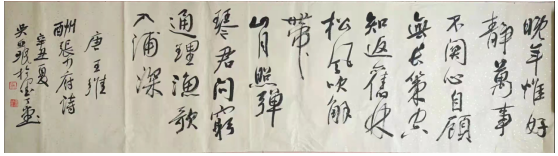 晚年惟好
静萬事
不関心自顧
無長策空
知返舊林
松風吹解
帶
山月照彈
琴君問窮
通理漁歌
入浦深
唐王維
酬張少府詩
辛丑夏
吴